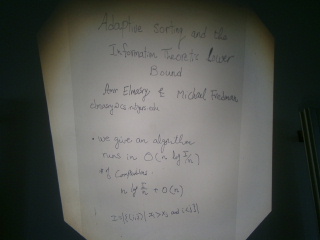 Adaptive Sorting and the
Information Theoretic Lower
Bound
Amr Elmasry & Michael Fredman
elmasry@cs.rutgers.edu
• we give an algorithm
runs in O(n lg I/n)
# of Comparisons:
n lg I/n + O(n)
I = |{(i,j) | xi > xj and i<j}|